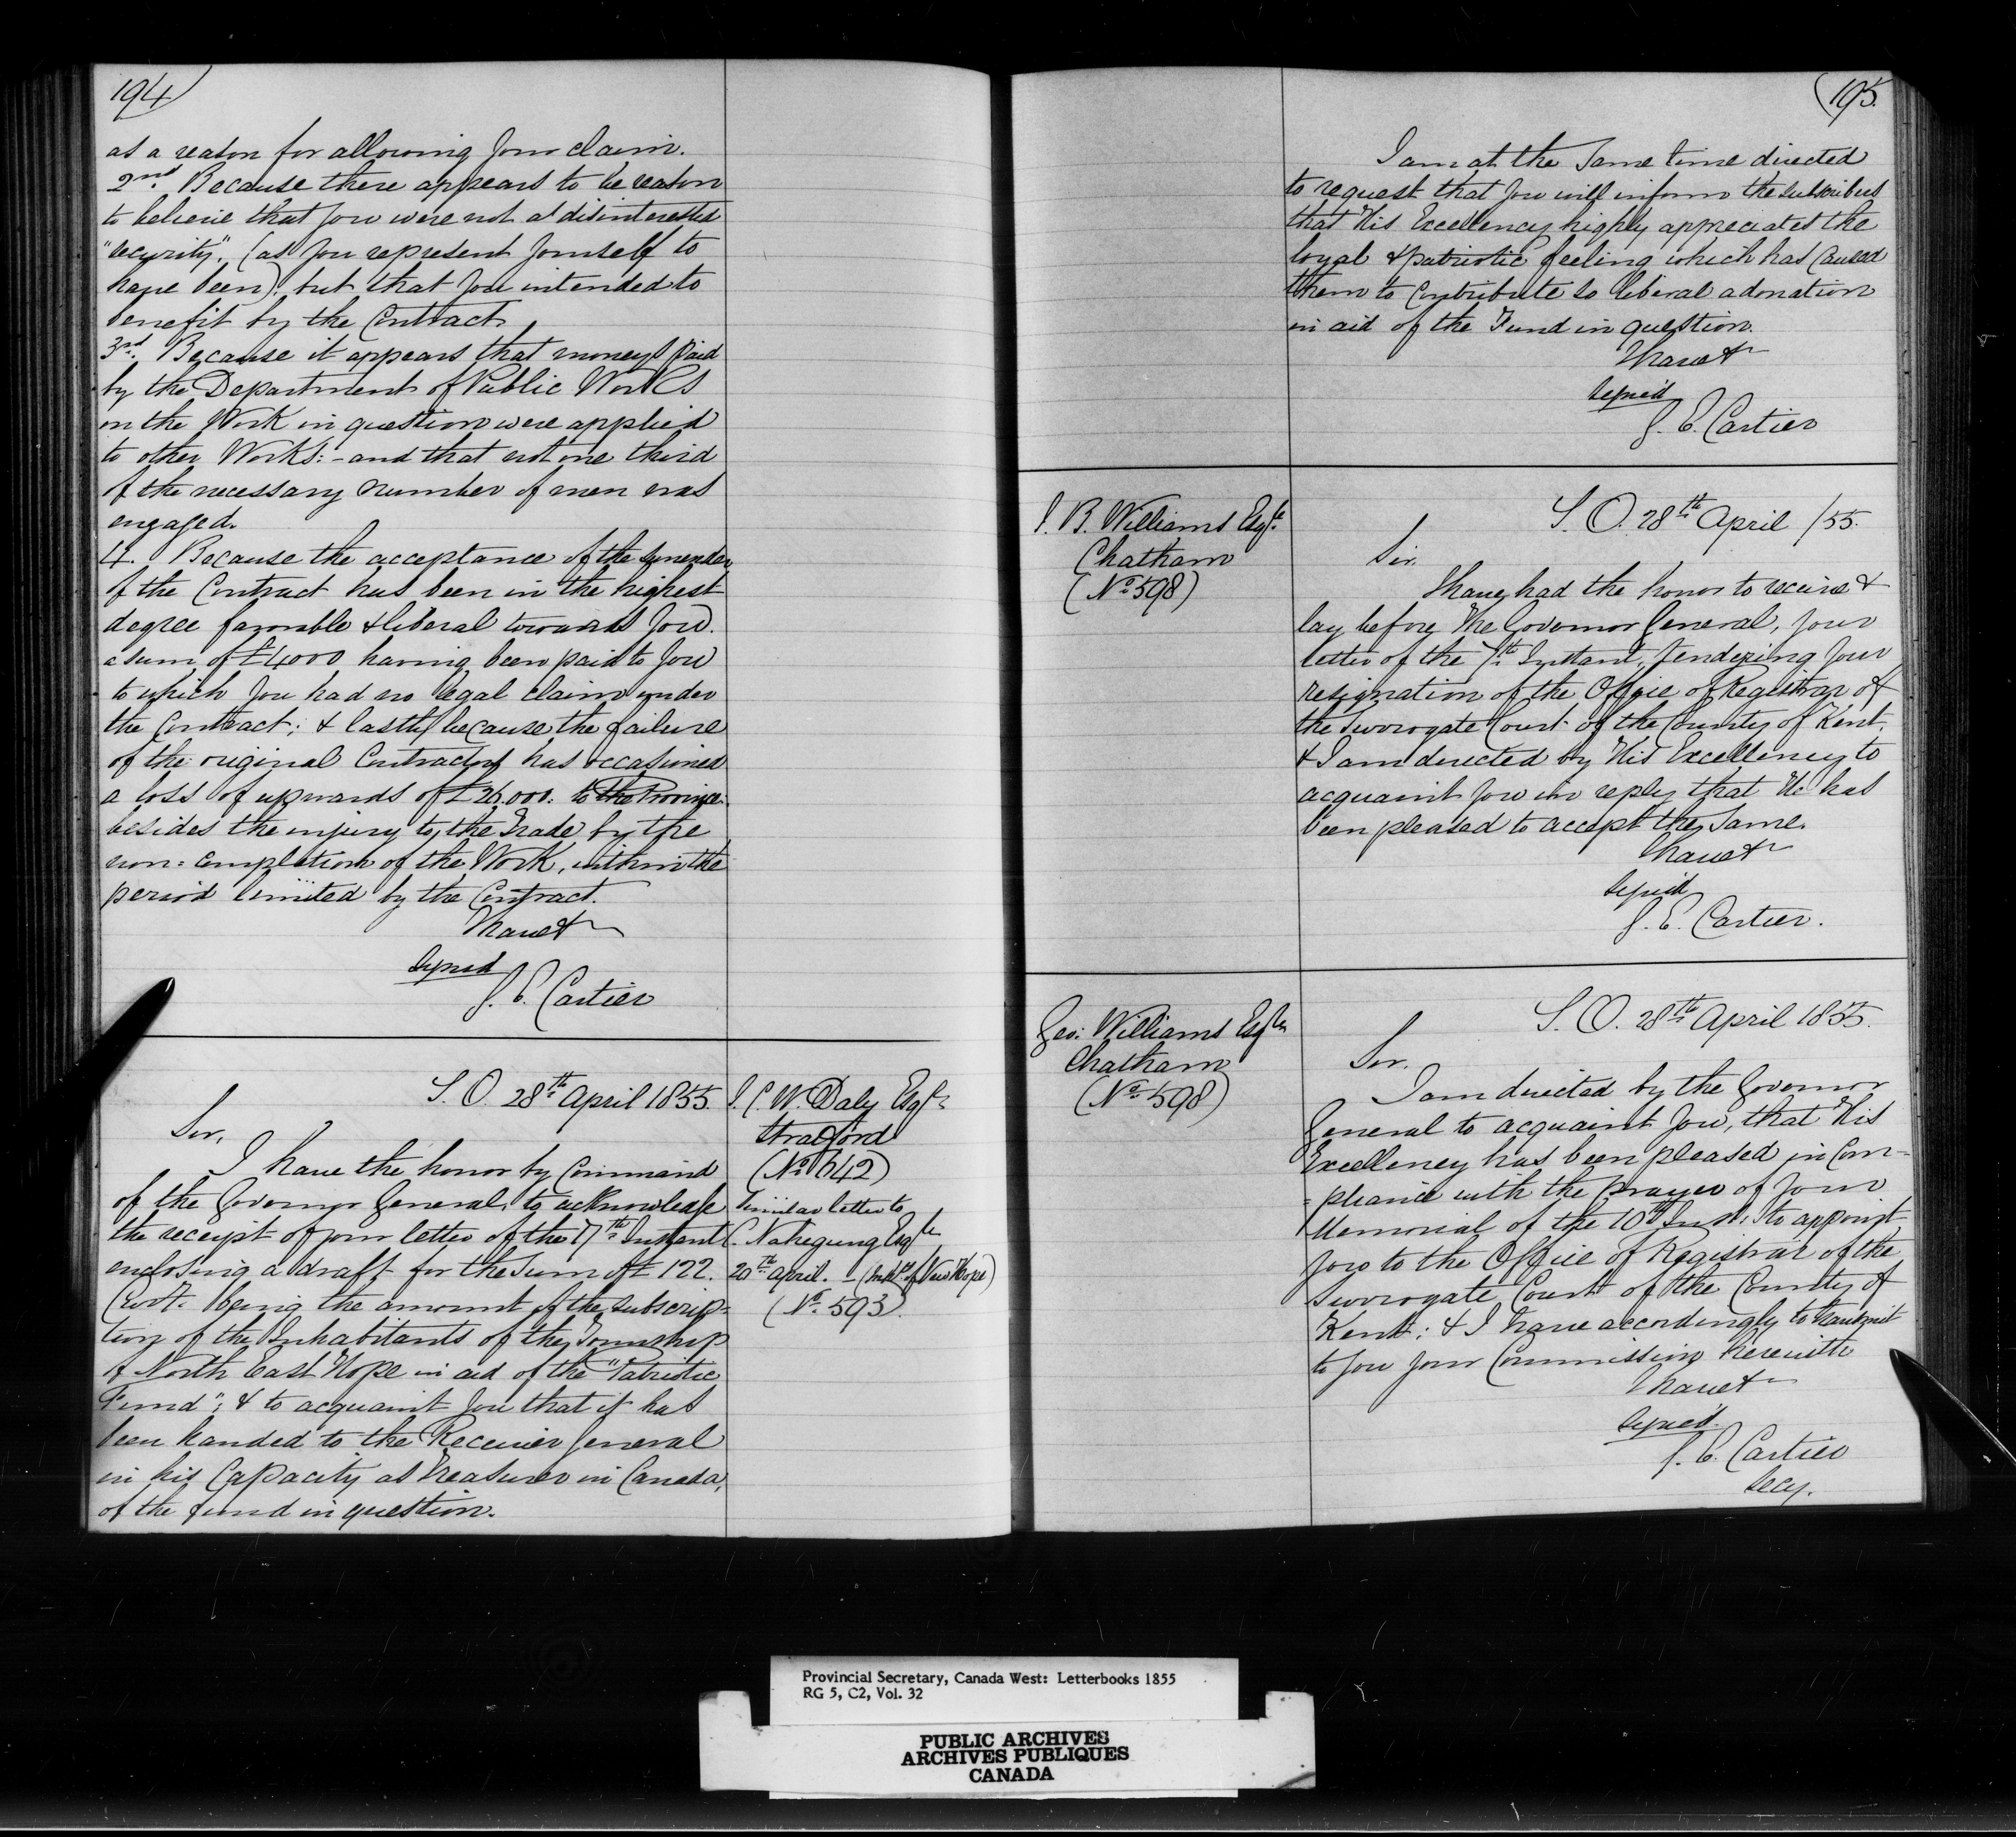 194
as a reason for allowing your claim.
2nd. Because there appears to be reason
to believe that you were not a disinterested
"security", (as you represent yourself to
have been), but that you intended to
benefit by the Contract.
3rd. Because it appears that moneys paid
by the Department of Public Works
on the Work in question were applied
to other Works: - and that not one third
of the necessary number of men was
engaged.
4. Because the acceptance of the surrender
of the Contract has been in the highest
degree favorable & liberal towards you.
a sum of £4000 having been paid to you
to which you had no legal claim under
the Contract; & lastly because the failure
of the original Contractors has occasioned
a loss of upwards of £26.000: to the Province
besides the injury to the Trade by the
non=completion of the Work, within the
period limited by the Contract.
I have &c
signed
G. E. Cartier
S. O. 28th April 1855.
Sir,
I have the honor by Command
of the Governor General, to acknowledge
the receipt of your letter of the 17th Instant
enclosing a draft for the sum of £ 122.
Curr. being the amount of the subscrip=
tion of the Inhabitants of the Township
of North East Hope in aid of the "Patriotic
Fund"; & to acquaint you that it has
been handed to the Receiver General
in his Capacity as Treasurer in Canada,
of the fund in question.
J. C. W. Daly Esqre
Stratford
(No. 642)
Similar letter to
C. Esqre
20th April. - ( of New Hope)
(No. 593)
195.
I am at the same time directed
to request that you will inform the subscribers
that His Excellency highly appreciates the
loyal & patriotic feeling which has caused
them to contribute so liberal a donation
in aid of the Fund in question.
I have &c
signed
G. E. Cartier
J. B. Williams Esqre
Chatham
(No. 598)
S. O. 28th April /55.
Sir.
I have had the honor to receive &
lay before The Governor General, your
letter of the 7th Instant, tendering your
resignation of the Office of Registrar of
the Surrogate Court of the County of Kent,
& I am directed by His Excellency to
acquaint you in reply that He has
been pleased to accept the same.
I have &c
signed
G. E. Cartier.
Geo: Williams Esqre
Chatham
(No. 598)
S. O. 28th April 1855.
Sir.
I am directed by the Governor
General to acquaint you, that His
Excellency has been pleased in Com=
=pliance with the prayer of your
Memorial of the 10th Inst: to appoint
you to the Office of Registrar of the
Surrogate Court of the County of
Kent; & I have accordingly to transmit
to you your Commission herewith
I have &c
signed.
G. E. Cartier
Secy.
Provincial Secretary, Canada West: Letterbooks 1855
RG 5, C2, Vol. 32
PUBLIC ARCHIVES
ARCHIVES PUBLIQUES
CANADA